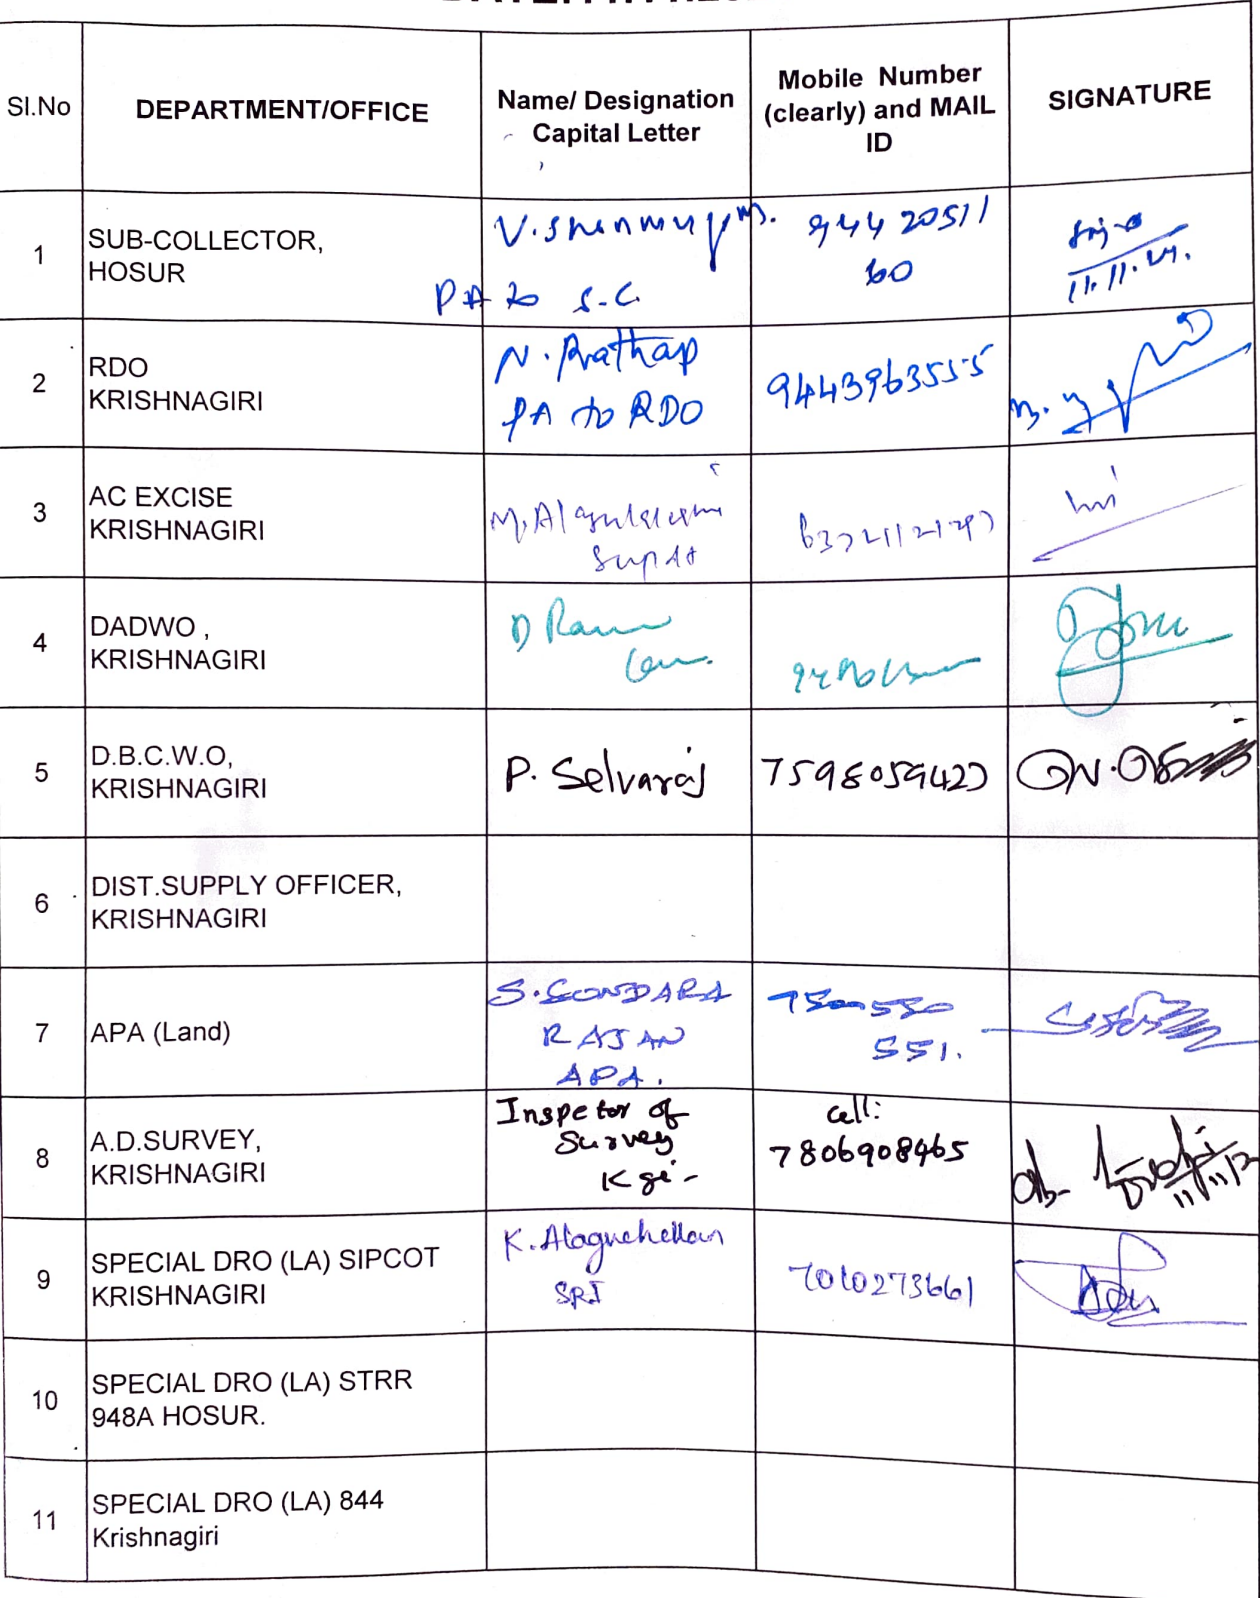 Sl.No
DEPARTMENT/OFFICE
Name/ Designation
Capital Letter
Mobile Number
(clearly) and MAIL
ID
SIGNATURE
1
SUB-COLLECTOR,
HOSUR
PA to S.C.
94420511
60
2
RDO
KRISHNAGIRI
N. Prathap
PA to RDO
9443963555
3
AC EXCISE
KRISHNAGIRI
Supdt
4
DADWO ,
KRISHNAGIRI
5
D.B.C.W.O,
KRISHNAGIRI
P. Selvaraj
7598059427
6
DIST.SUPPLY OFFICER,
KRISHNAGIRI
7
APA (Land)
S. SONDARA
RAJAN
APA.
7500550
551.
8
A.D.SURVEY,
KRISHNAGIRI
Inspetor of
Survey
Kgi-
cell:
7806908465
9
SPECIAL DRO (LA) SIPCOT
KRISHNAGIRI
K. Alaguchellan
SRI
7010273661
10
SPECIAL DRO (LA) STRR
948A HOSUR.
11
SPECIAL DRO (LA) 844
Krishnagiri